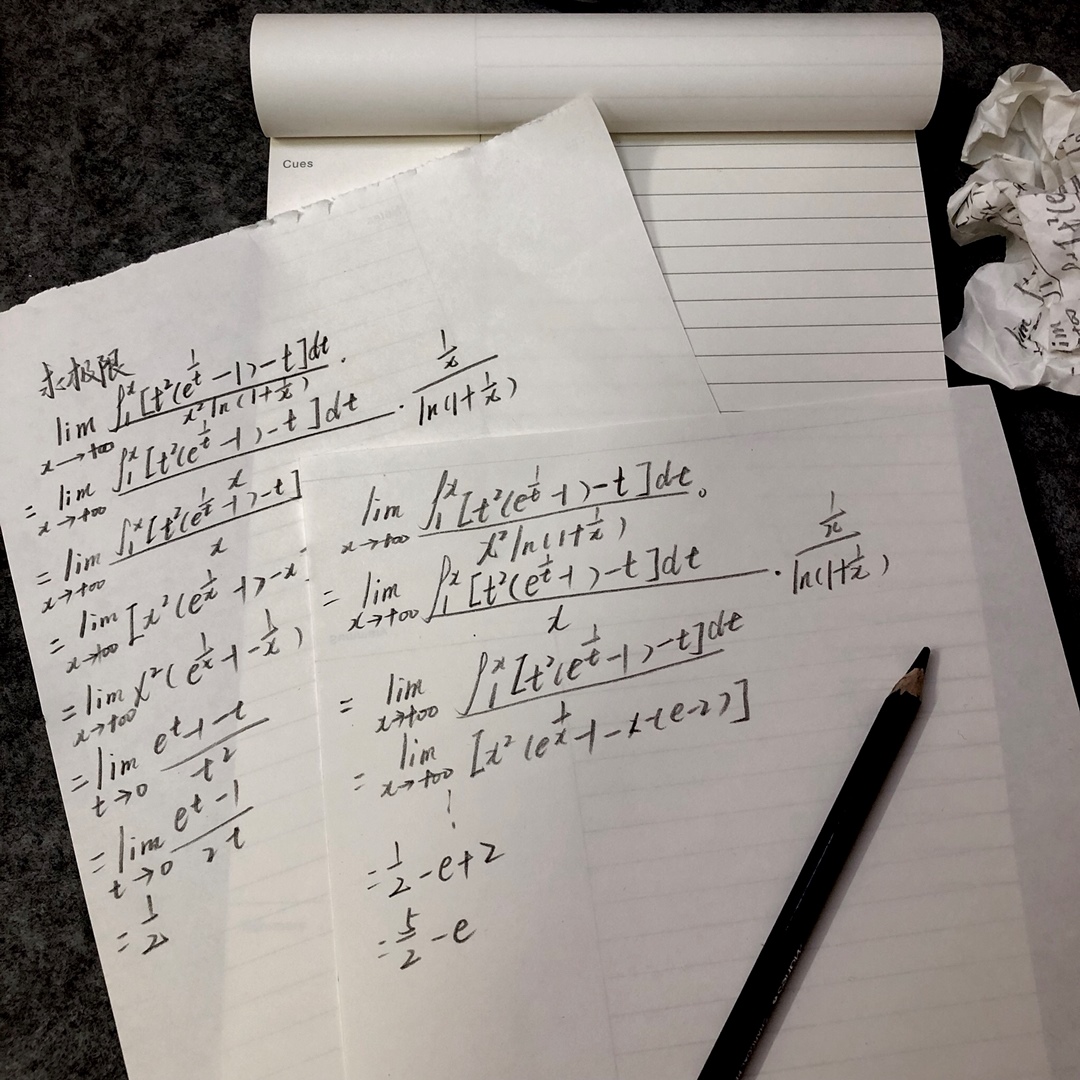 Cues
求极限
lim x→+∞ ∫₁ˣ[t²(e^(1/t)-1)-t]dt / x²ln(1+1/x) .
= lim x→+∞ ∫₁ˣ[t²(e^(1/t)-1)-t]dt / x · (1/x) / ln(1+1/x)
= lim x→+∞ ∫₁ˣ[t²(e^(1/t)-1)-t] / x
= lim x→+∞ [x²(e^(1/x)-1)-x
= lim x→+∞ x²(e^(1/x)-1-1/x)
= lim t→0 (e^t-1-t) / t²
= lim t→0 (e^t-1) / 2t
= 1/2
lim x→+∞ ∫₁ˣ[t²(e^(1/t)-1)-t]dt / x²ln(1+1/x) 。
= lim x→+∞ ∫₁ˣ[t²(e^(1/t)-1)-t]dt / x · (1/x) / ln(1+1/x)
= lim x→+∞ ∫₁ˣ[t²(e^(1/t)-1)-t]dt
= lim x→+∞ [x²(e^(1/x)-1-x-(e-2)]
⋮
= 1/2-e+2
= 5/2-e